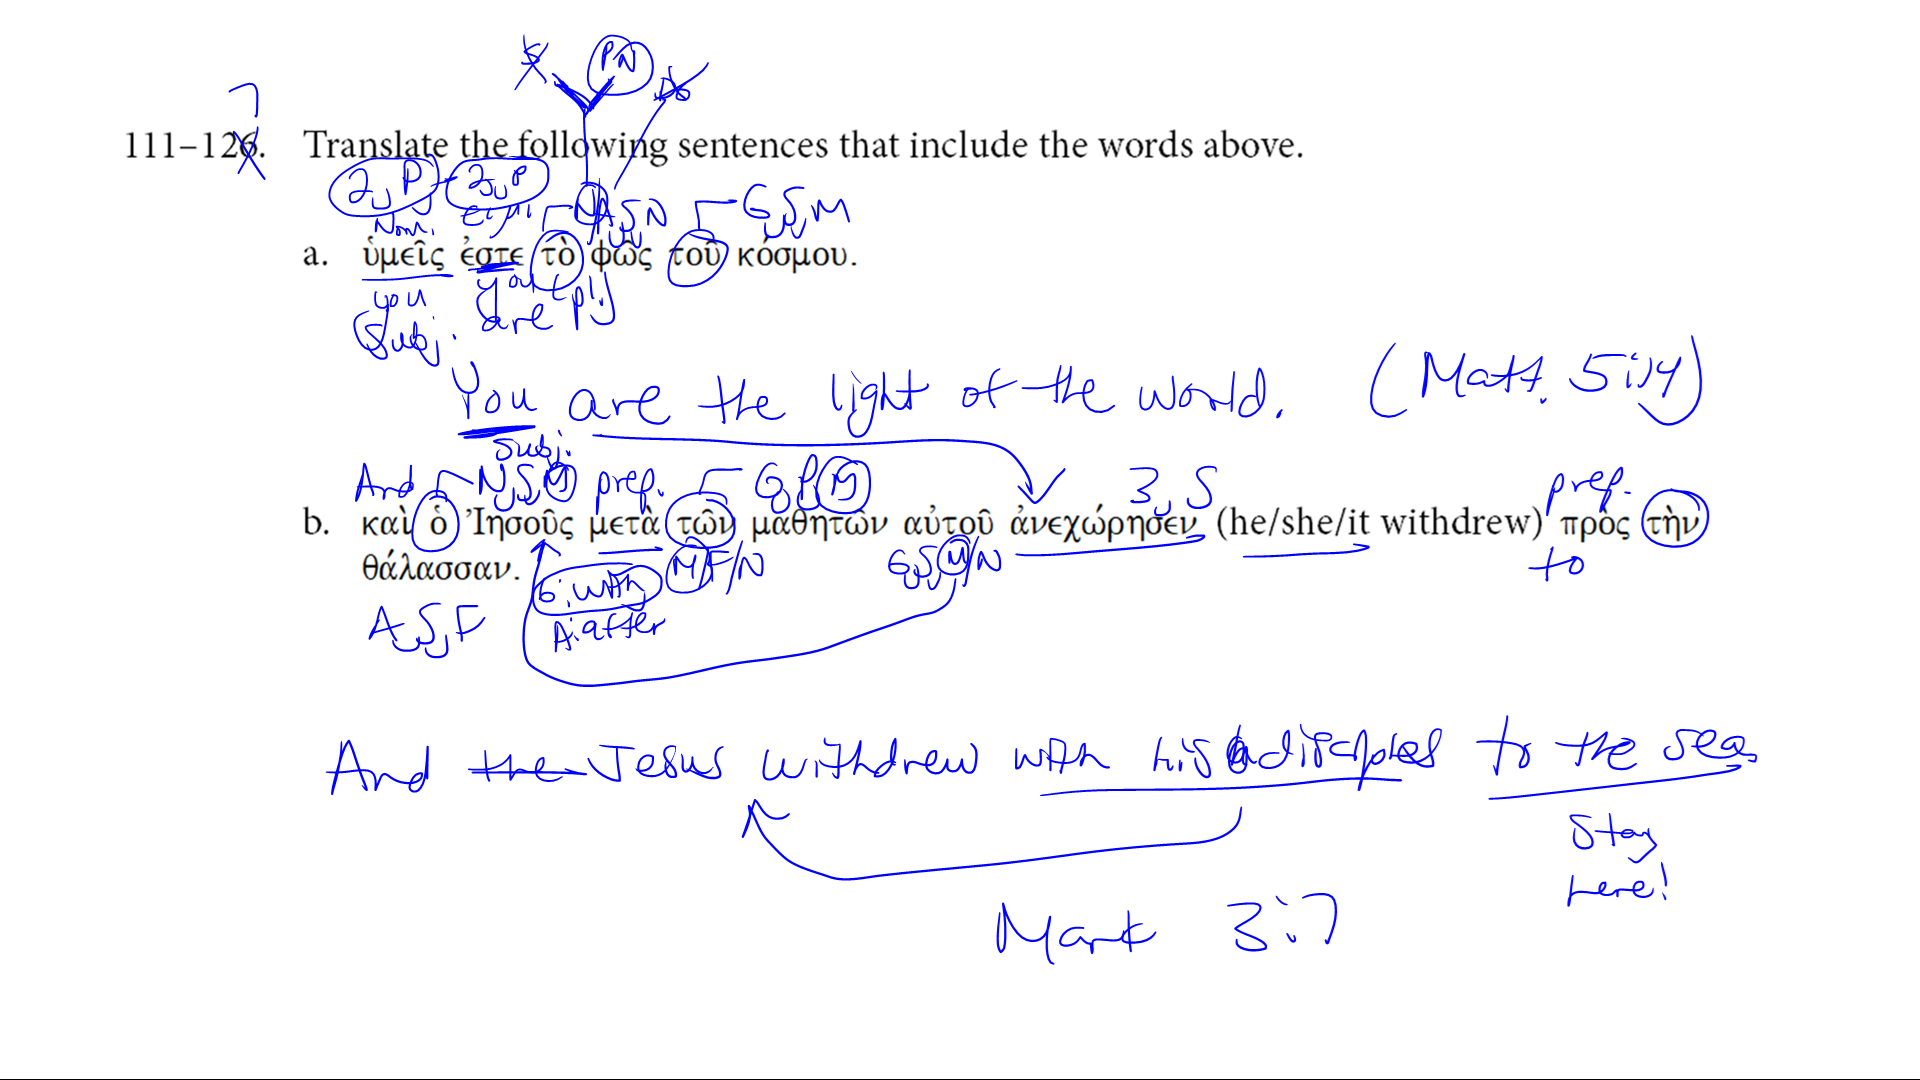 PN
7
111–126. Translate the following sentences that include the words above.
2, P 2, P
Nom. εἰμι N/A S N G, S, M
a. ὑμεῖς ἐστε τὸ φῶς τοῦ κόσμου.
you you (pl.)
Subj. are
You are the light of the world. (Matt. 5:14)
subj.
And N, S, M prep. G, P, M 3, S prep.
b. καὶ ὁ Ἰησοῦς μετὰ τῶν μαθητῶν αὐτοῦ ἀνεχώρησεν (he/she/it withdrew) πρὸς τὴν
θάλασσαν. G: with M/F/N G, S, M/N to
A, S, F A: after
And the Jesus withdrew with his disciples to the sea
Stay
here!
Mark 3:7